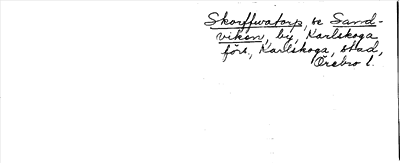 Skorffwatorp, se Sand-
viken, by, Karlskoga
förs., Karlskoga, stad,
Örebro l.